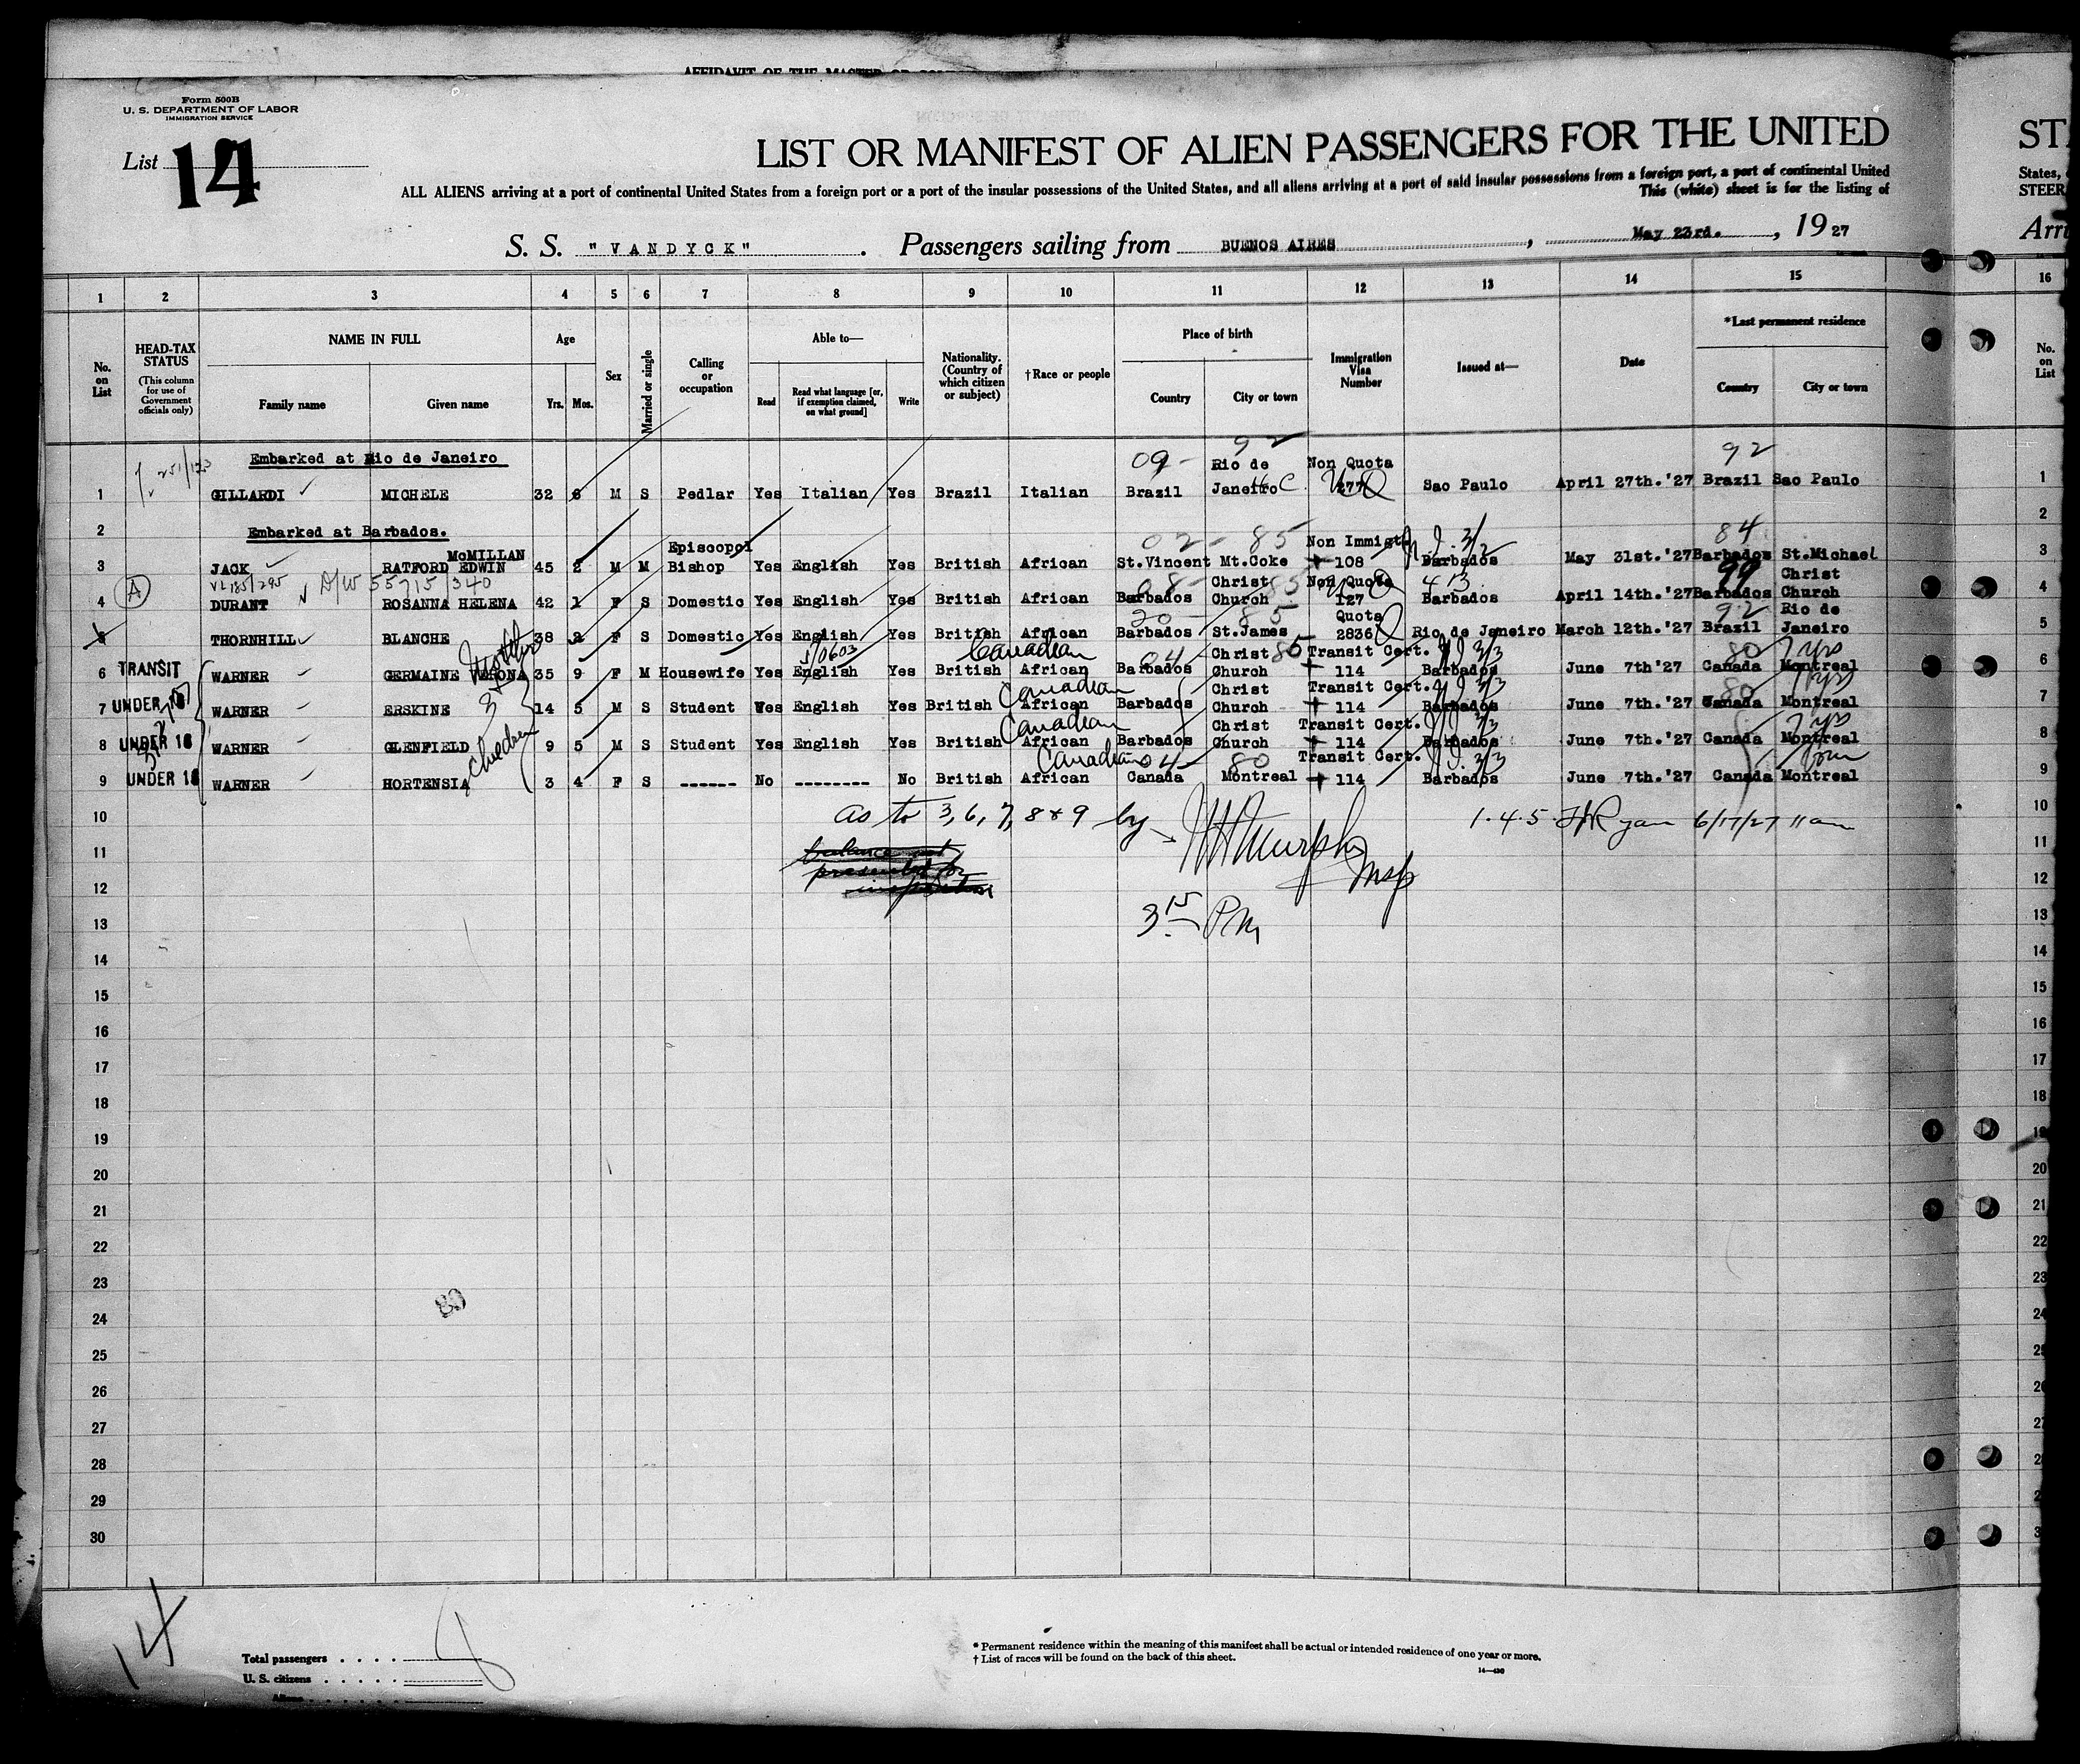 AFFIDAVIT OF THE MASTER OR
Form 500B
U. S. DEPARTMENT OF LABOR
IMMIGRATION SERVICE
List 14
LIST OR MANIFEST OF ALIEN PASSENGERS FOR THE UNITED
ST
ALL ALIENS arriving at a port of continental United States from a foreign port or a port of the insular possessions of the United States, and all aliens arriving at a port of said insular possessions from a foreign port, a port of continental United
States,
This (white) sheet is for the listing of
STEER
S. S. "VANDYCK". Passengers sailing from BUENOS AIRES, May 23rd., 19 27
Arri
1 2 3 4 5 6 7 8 9 10 11 12 13 14 15 16
No. on List
HEAD-TAX STATUS
(This column for use of Government officials only)
NAME IN FULL
Family name Given name
Age
Yrs. Mos.
Sex
Married or single
Calling or occupation
Able to—
Read
Read what language [or, if exemption claimed, on what ground]
Write
Nationality. (Country of which citizen or subject)
†Race or people
Place of birth
Country City or town
Immigration Visa Number
Issued at—
Date
*Last permanent residence
Country City or town
No. on List
Embarked at Rio de Janeiro
09- 92 92
1 GILLARDI MICHELE 32 6 M S Pedlar Yes Italian Yes Brazil Italian Brazil Rio de Janeiro Non Quota Sao Paulo April 27th.'27 Brazil Sao Paulo 1
2 Embarked at Barbados. 2
02- 85 84
3 JACK RATFORD EDWIN McMILLAN 45 2 M M Episcopol Bishop Yes English Yes British African St.Vincent Mt.Coke Non Immigt. 108 Barbados May 31st.'27 Barbados St.Michael 3
A VL 185/295 D/W 55715/340
08- 85 413 99
4 DURANT ROSANNA HELENA 42 1 F S Domestic Yes English Yes British African Barbados Christ Church Non Quota 127 Barbados April 14th.'27 Barbados Christ Church 4
20- 85 92
5 THORNHILL BLANCHE 38 2 F S Domestic Yes English Yes British African Barbados St.James Quota 2836 Rio de Janeiro March 12th.'27 Brazil Rio de Janeiro 5
Mother Canadian 04 85 80 7 yrs
TRANSIT
6 WARNER GERMAINE VERONA 35 9 F M Housewife Yes English Yes British African Barbados Christ Church Transit Cert. 114 Barbados June 7th'27 Canada Montreal 6
& Canadian 80 7 yrs
7 UNDER 16 WARNER ERSKINE 14 5 M S Student Yes English Yes British African Barbados Christ Church Transit Cert. 114 Barbados June 7th.'27 Canada Montreal 7
Canadian 7 yrs
8 UNDER 16 WARNER GLENFIELD 9 5 M S Student Yes English Yes British African Barbados Christ Church Transit Cert. 114 Barbados June 7th.'27 Canada Montreal 8
Canadian 04 80
9 UNDER 16 WARNER HORTENSIA 3 4 F S ------ No --------- No British African Canada Montreal Transit Cert. 114 Barbados June 7th.'27 Canada Montreal 9
10 as to 3, 6, 7, 8 & 9 by 1.4.5 Ryan 6/17/27 11 am 10
11 Murphy 11
12 Insp 12
13 3 15 PM 13
14 14
15 15
16 16
17 17
18 18
19 19
20 20
21 21
22 22
23 23
24 24
25
26
27
28
29
30
14
Total passengers
U. S. citizens
Aliens
* Permanent residence within the meaning of this manifest shall be actual or intended residence of one year or more.
† List of races will be found on the back of this sheet.